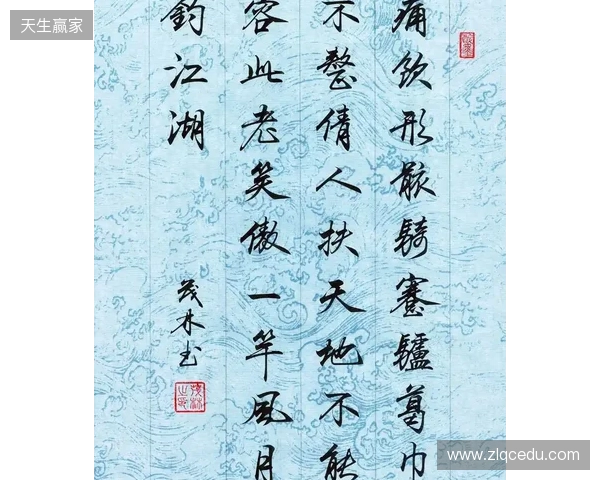 天生赢家
痛飲形骸騎蹇驢葛巾
不整倩人扶天地不能
容此老笑傲一竿風月
釣江湖
茂林书
www.zlqcedu.com